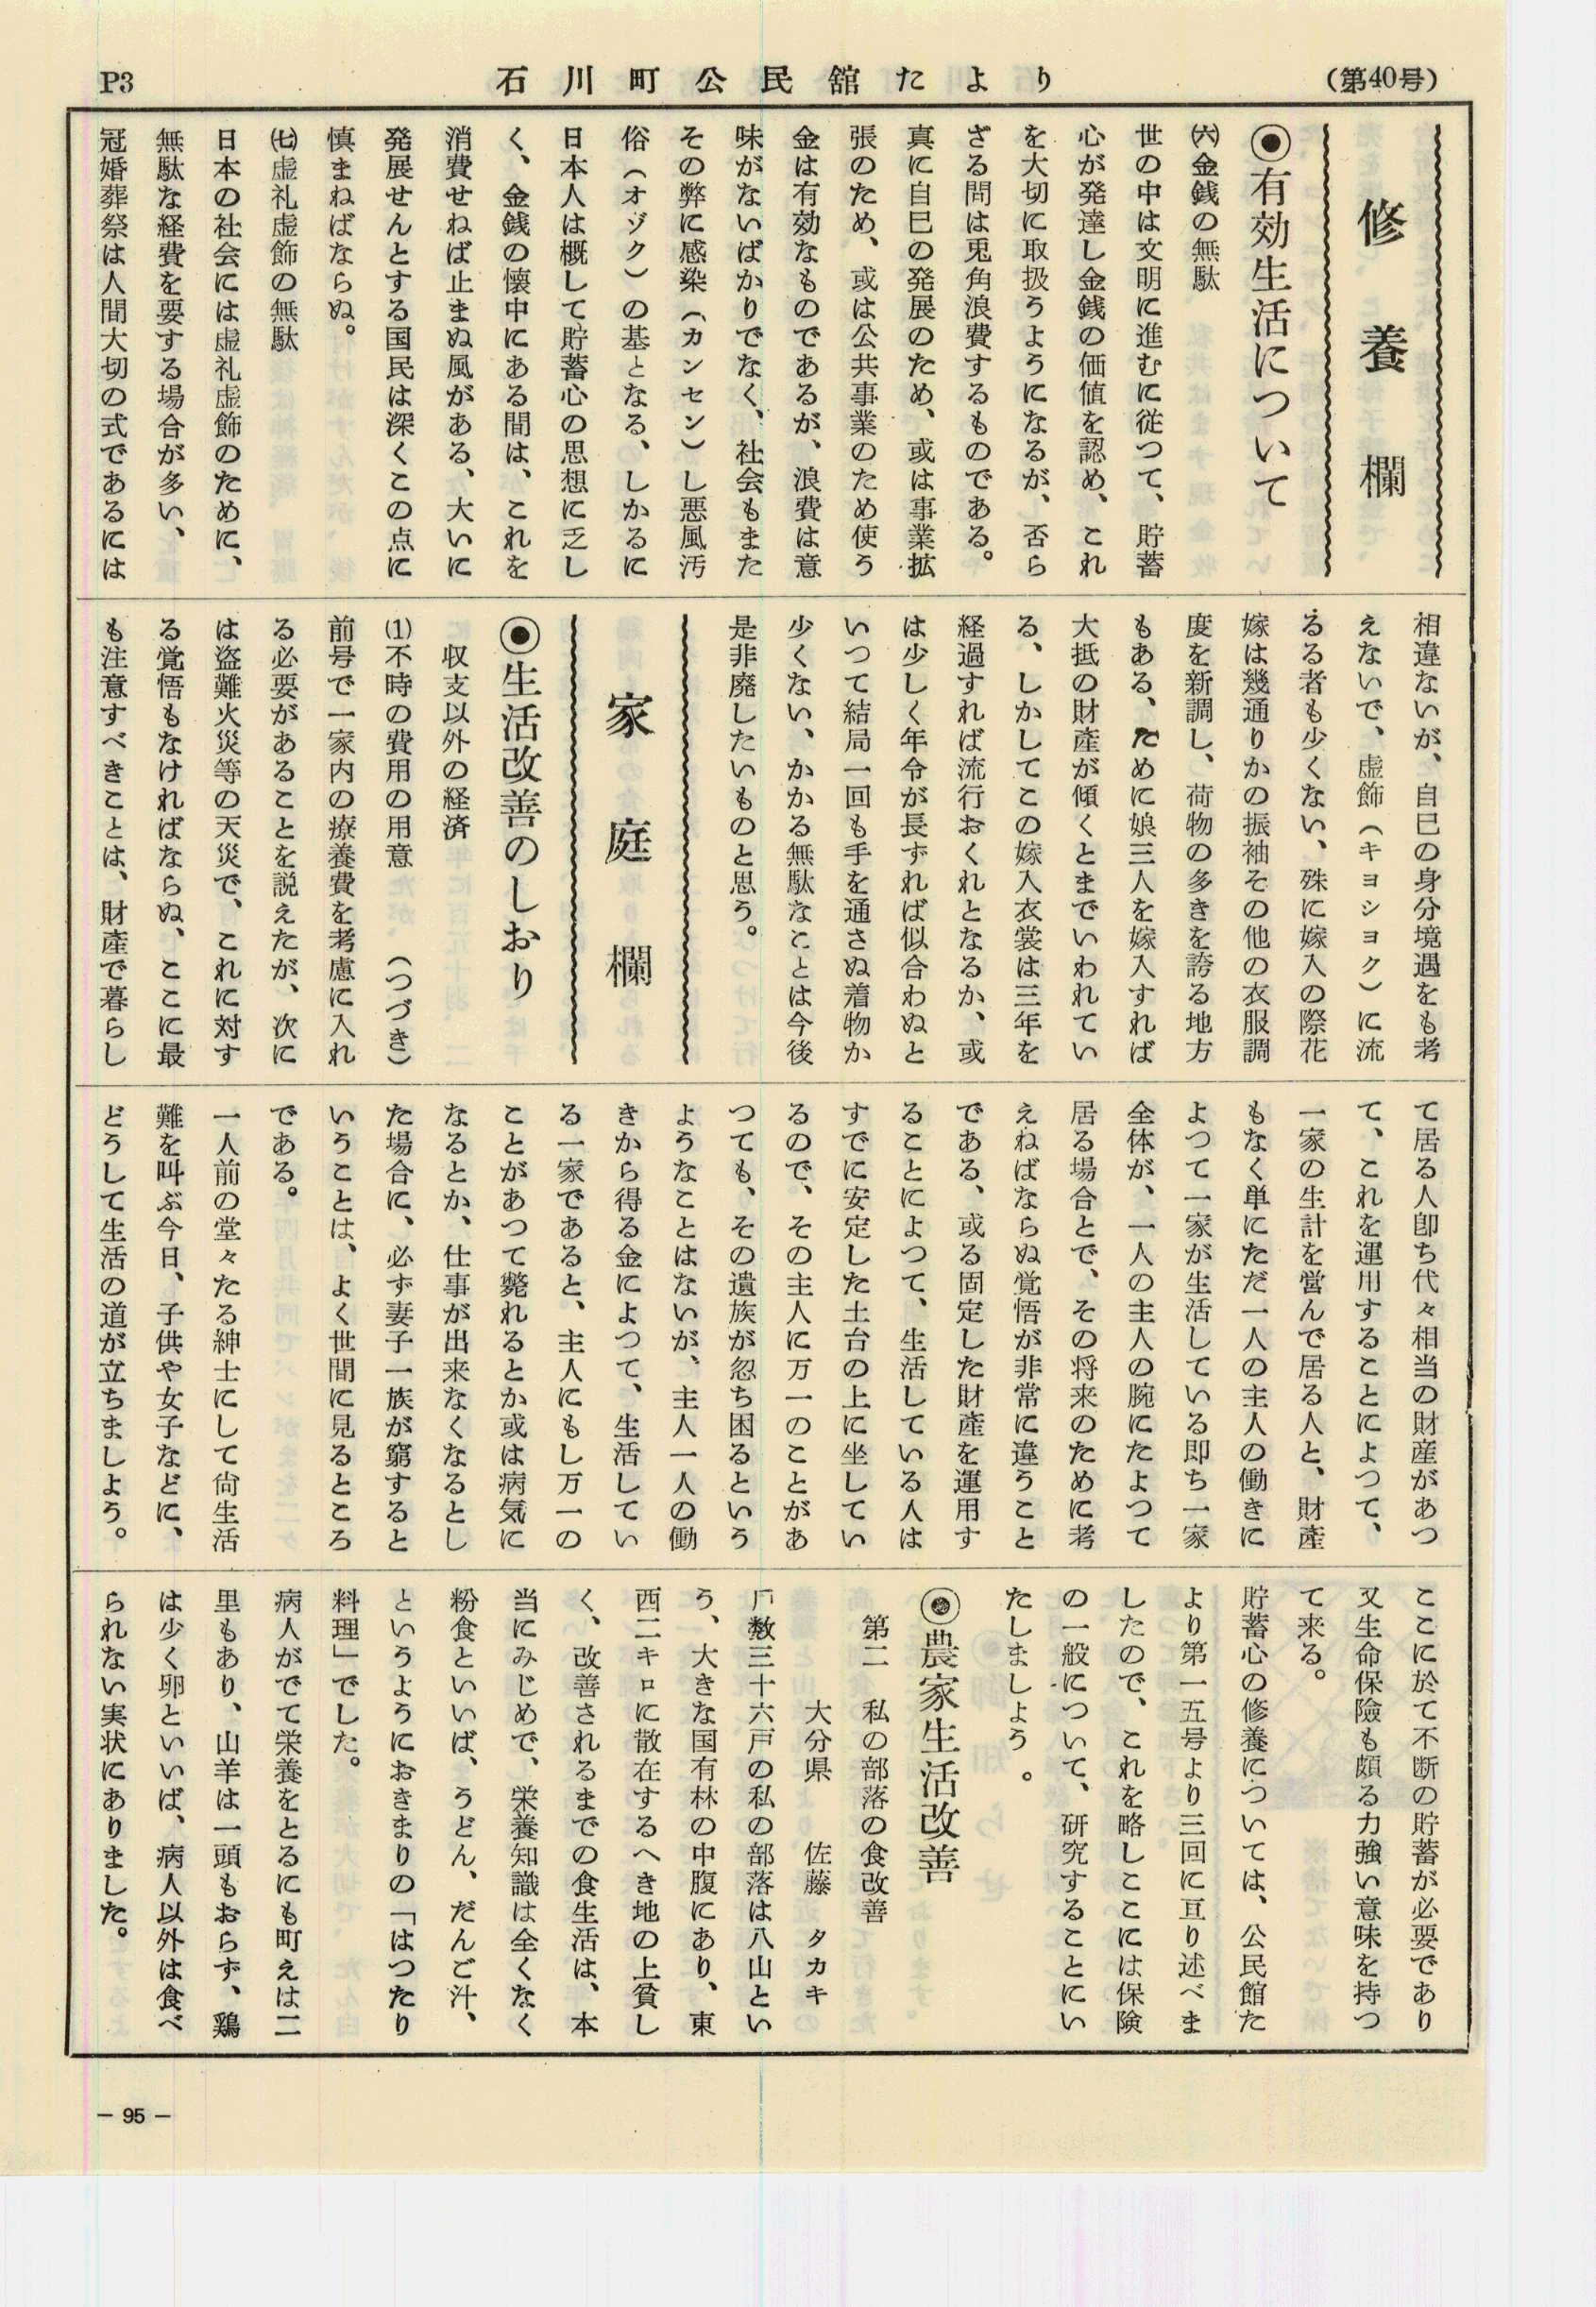 (第40号)
石川町公民舘たより
P3
修養欄
◉有効生活について
㈥金銭の無駄
世の中は文明に進むに従つて、貯蓄
心が発達し金銭の価値を認め、これ
を大切に取扱うようになるが、否ら
ざる問は兎角浪費するものである。
真に自巳の発展のため、或は事業拡
張のため、或は公共事業のため使う
金は有効なものであるが、浪費は意
味がないばかりでなく、社会もまた
その弊に感染（カンセン）し悪風汚
俗（オゾク）の基となる、しかるに
日本人は概して貯蓄心の思想に乏し
く、金銭の懐中にある間は、これを
消費せねば止まぬ風がある、大いに
発展せんとする国民は深くこの点に
慎まねばならぬ。
㈦虚礼虚飾の無駄
日本の社会には虚礼虚飾のために、
無駄な経費を要する場合が多い、
冠婚葬祭は人間大切の式であるには
相違ないが、自巳の身分境遇をも考
えないで、虚飾（キヨシヨク）に流
るる者も少くない、殊に嫁入の際花
嫁は幾通りかの振袖その他の衣服調
度を新調し、荷物の多きを誇る地方
もある、ために娘三人を嫁入すれば
大抵の財産が傾くとまでいわれてい
る、しかしてこの嫁入衣裳は三年を
経過すれば流行おくれとなるか、或
は少しく年令が長ずれば似合わぬと
いつて結局一回も手を通さぬ着物か
少くない、かかる無駄なことは今後
是非廃したいものと思う。
家庭欄
◉生活改善のしおり
収支以外の経済
⑴不時の費用の用意　（つづき）
前号で一家内の療養費を考慮に入れ
る必要があることを説えたが、次に
は盗難火災等の天災で、これに対す
る覚悟もなければならぬ、ここに最
も注意すべきことは、財産で暮らし
て居る人卽ち代々相当の財産があつ
て、これを運用することによつて、
一家の生計を営んで居る人と、財産
もなく単にただ一人の主人の働きに
よつて一家が生活している即ち一家
全体が、一人の主人の腕にたよつて
居る場合とで、その将来のために考
えねばならぬ覚悟が非常に違うこと
である、或る固定した財産を運用す
ることによつて、生活している人は
すでに安定した土台の上に坐してい
るので、その主人に万一のことがあ
つても、その遺族が忽ち困るという
ようなことはないが、主人一人の働
きから得る金によつて、生活してい
る一家であると、主人にもし万一の
ことがあつて斃れるとか或は病気に
なるとか、仕事が出来なくなるとし
た場合に、必ず妻子一族が窮すると
いうことは、よく世間に見るところ
である。
一人前の堂々たる紳士にして尙生活
難を叫ぶ今日、子供や女子などに、
どうして生活の道が立ちましよう。
ここに於て不断の貯蓄が必要であり
又生命保險も頗る力強い意味を持つ
て来る。
貯蓄心の修養については、公民館た
より第一五号より三回に亘り述べま
したので、これを略しここには保険
の一般について、研究することにい
たしましよう。
◉農家生活改善
第二　私の部落の食改善
大分県　佐藤　タカキ
戸数三十六戸の私の部落は八山とい
う、大きな国有林の中腹にあり、東
西二キロに散在するへき地の上貧し
く、改善されるまでの食生活は、本
当にみじめで、栄養知識は全くなく
粉食といいば、うどん、だんご汁、
というようにおきまりの「はつたり
料理」でした。
病人がでて栄養をとるにも町えは二
里もあり、山羊は一頭もおらず、鶏
は少く卵といいば、病人以外は食べ
られない実状にありました。
－ 95 －